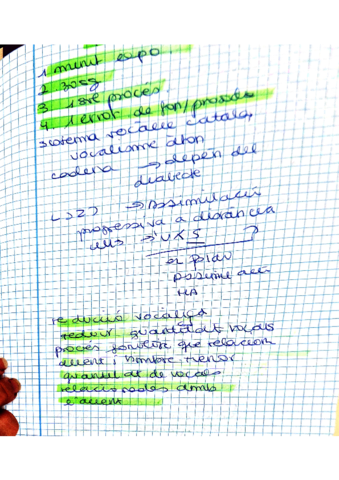 1 minut expo
2 30sg
3 1sre procés.
4. 1 error de fon/prosodia
sistema vocàlic català,
vocalisme àton
cadena → depèn del
dialecte
→ Assimilació
progressiva a distància
ulls →
assimilació
reducció vocàlica
reduir quantitats vocals
procés fonètic que relaciona
accent i nombre menor
quantitat de vocals
relacionades amb
l'accent